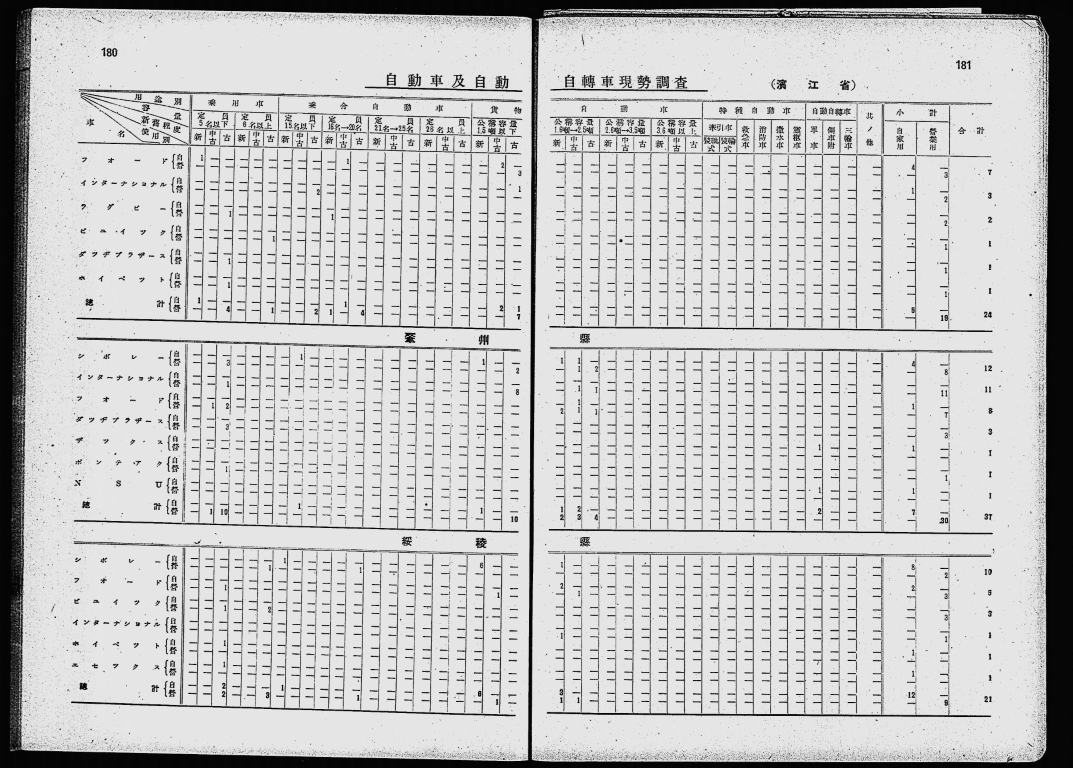 180
181
自動車及自動
自轉車現勢調査 (濱江省)
用途別
容量
新舊程度
使用別
車名
乘用車 乘合自動車 貨物
自動車 特種自動車 自動自轉車 其ノ他 小計 合計
定員5名以下 定員6名以上 定員15名以下 定員16名→20名 定員21名→25名 定員26名以上 公稱容量1.5噸以下
公稱容量1.6噸→2.5噸 公稱容量2.6噸→3.5噸 公稱容量3.6噸以上 牽引車 救急車 消防車 撒水車 單車 側車附 三輪車 自家用 營業用
新 中古 古 新 中古 古 新 中古 古 新 中古 古 新 中古 古 新 中古 古 新 中古 古
新 中古 古 新 中古 古 新 中古 古
フオード 自 1 — — — — — — — — — 1 — — — — — — — — 2 — 4 — 7
營 3 3
インターナショナル 自 1 1 3
營 2 2
ラダビー 自 2
營 1 1 2
ビユイツク 自 1
營 1 1
ダツヂブラザース 自 1
營 1 1
ホイペツト 自 1
營 1 1
總計 自 1 1 2 1 5 24
營 4 1 2 1 4 7 19
肇州縣
シボレー 自 1 1 1 1 4 12
營 3 2 1 2 8
インターナショナル 自 11
營 1 8 1 1 11
フオード 自 1 1 8
營 1 2 2 1 1 7
ダツヂブラザース 自 3
營 3 3
ヂツクス 自 1 1 1
營
ポンテアク 自 1
營 1 1
NSU 自 1
營 1 1
總計 自 1 1 1 2 2 7 37
營 1 10 10 2 3 4 30
綏稜縣
シボレー 自 1 6 1 8 10
營 1 1 2
フオード 自 2 2 5
營 1 1 1 3
ビユイツク 自 3
營 1 2 3
インターナショナル 自 1 1
營
ホイペツト 自 1 1 1
營
エセツクス 自 1 1 1
營
總計 自 2 1 6 3 12 21
營 2 3 1 1 1 1 9